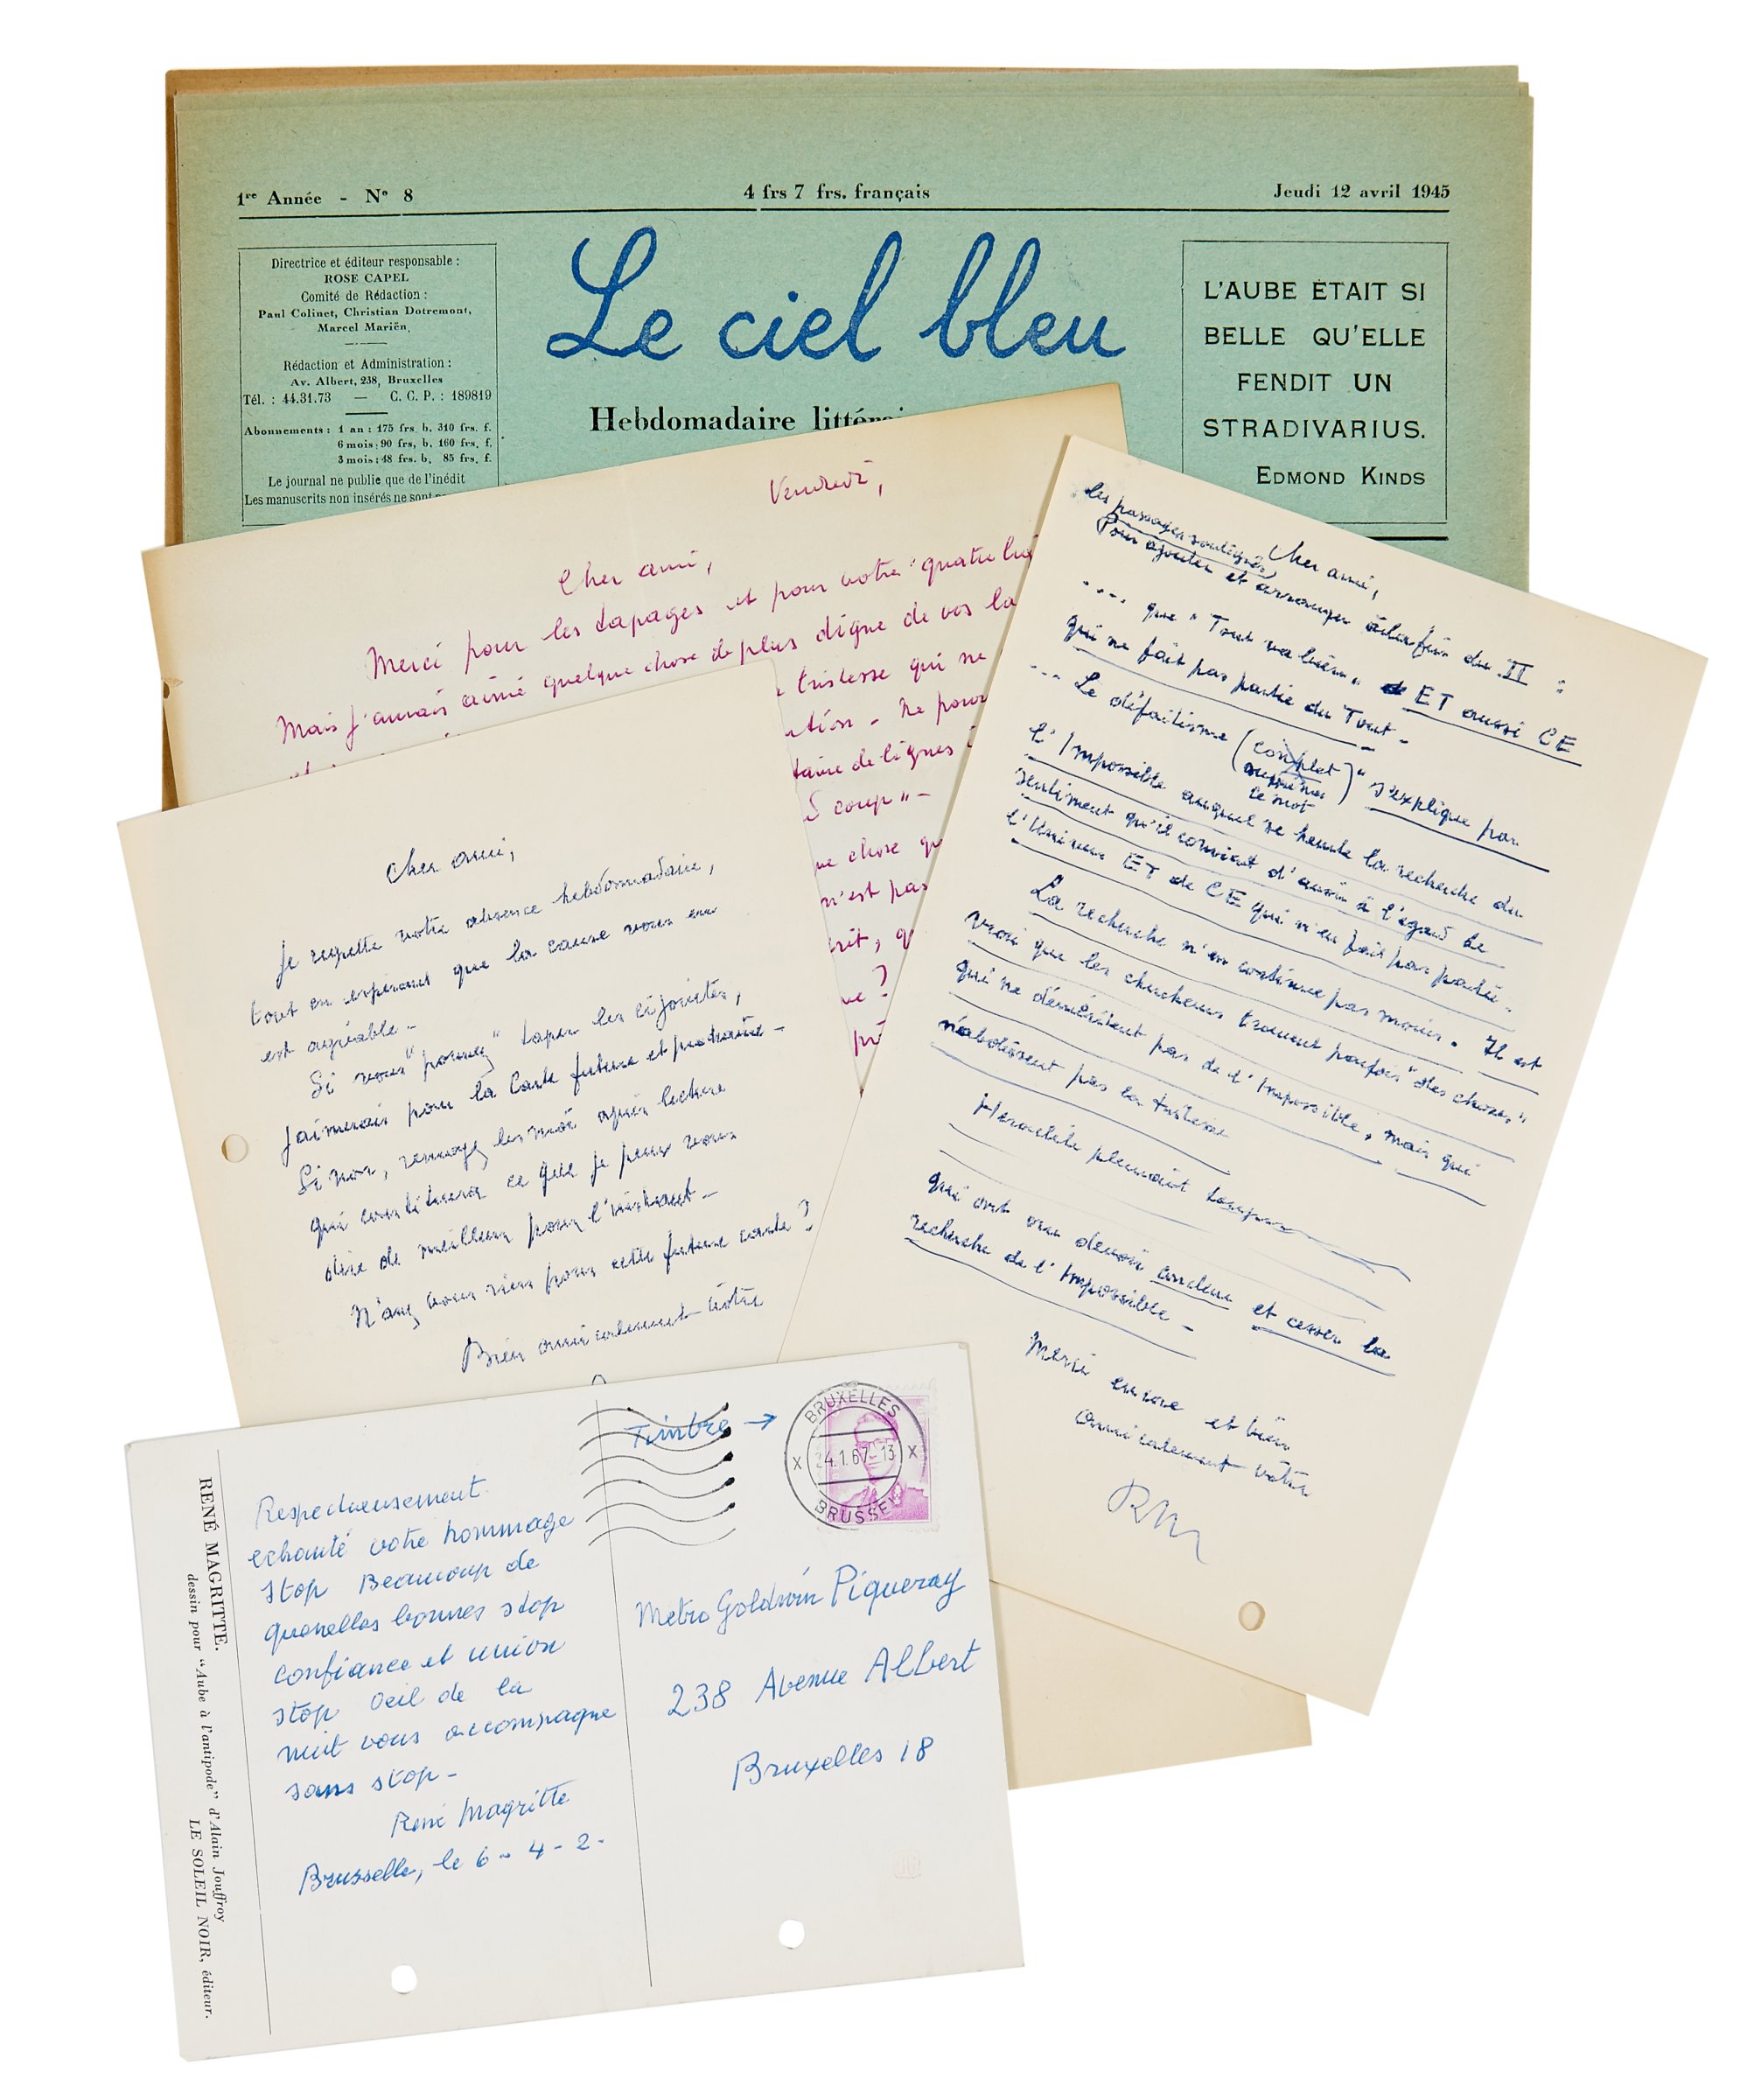 1re Année - N° 8
4 frs 7 frs. français
Jeudi 12 avril 1945
Directrice et éditeur responsable :
ROSE CAPEL
Comité de Rédaction :
Paul Colinet, Christian Dotremont,
Marcel Mariën,
Rédaction et Administration :
Av. Albert, 238, Bruxelles
Tél. : 44.31.73 — C. C. P. : 189819
Abonnements : 1 an : 175 frs. b. 310 frs. f.
6 mois : 90 frs. b. 160 frs. f.
3 mois : 48 frs. b. 85 frs. f.
Le journal ne publie que de l'inédit
Les manuscrits non insérés ne sont
Le ciel bleu
Hebdomadaire littérai
L'AUBE ÉTAIT SI
BELLE QU'ELLE
FENDIT UN
STRADIVARIUS.
EDMOND KINDS
Vendredi,
Cher ami,
Merci pour les tapages et pour votre "quatre
Mais j'aurais aimé quelque chose de plus digne de vos
tristesse qui ne
ne pour
taine de lignes
coup" -
chose
n'est pas
rit,
?
Cher ami,
Je regrette votre absence hebdomadaire,
tout en espérant que la cause vous en
est agréable -
Si vous "pouvez" taper les ci jointes,
j'aimerais pour la carte future et prochaine -
Si non, renvoyez les moi après lecture
qui constituera ce que je peux vous
dire de meilleur pour l'instant -
N'avez vous rien pour cette future carte ?
Bien amicalement vôtre
les passages soulignés
Cher ami,
Pour ajouter et arranger à la fin du II :
.... que "Tout va bien" ET aussi CE
qui ne fait pas partie du Tout -
... Le défaitisme (complet)" s'explique par
supprimer
le mot
l'Impossible auquel se heurte la recherche du
sentiment qu'il convient d'avoir à l'égard de
l'Univers ET de CE qui n'en fait pas partie.
La recherche n'en continue pas moins. Il est
vrai que les chercheurs trouvent parfois "des choses"
qui ne déméritent pas de l'Impossible, mais qui
n'abolissent pas la tristesse
Héraclite pleurait
qui ont cru devoir conclure et cesser la
recherche de l'Impossible -
Merci encore et bien
amicalement vôtre
RM
Timbre →
BRUXELLES
24.1.67-13
BRUSSEL
Respectueusement
echanté votre hommage
stop Beaucoup de
quenelles bonnes stop
confiance et union
stop Oeil de la
nuit vous accompagne
sans stop -
René Magritte
Brusselle, le 6 - 4 - 2 -
Metro Goldwin Piqueray
238 Avenue Albert
Bruxelles 18
RENÉ MAGRITTE.
dessin pour "Aube à l'antipode" d'Alain Jouffroy
LE SOLEIL NOIR, éditeur.